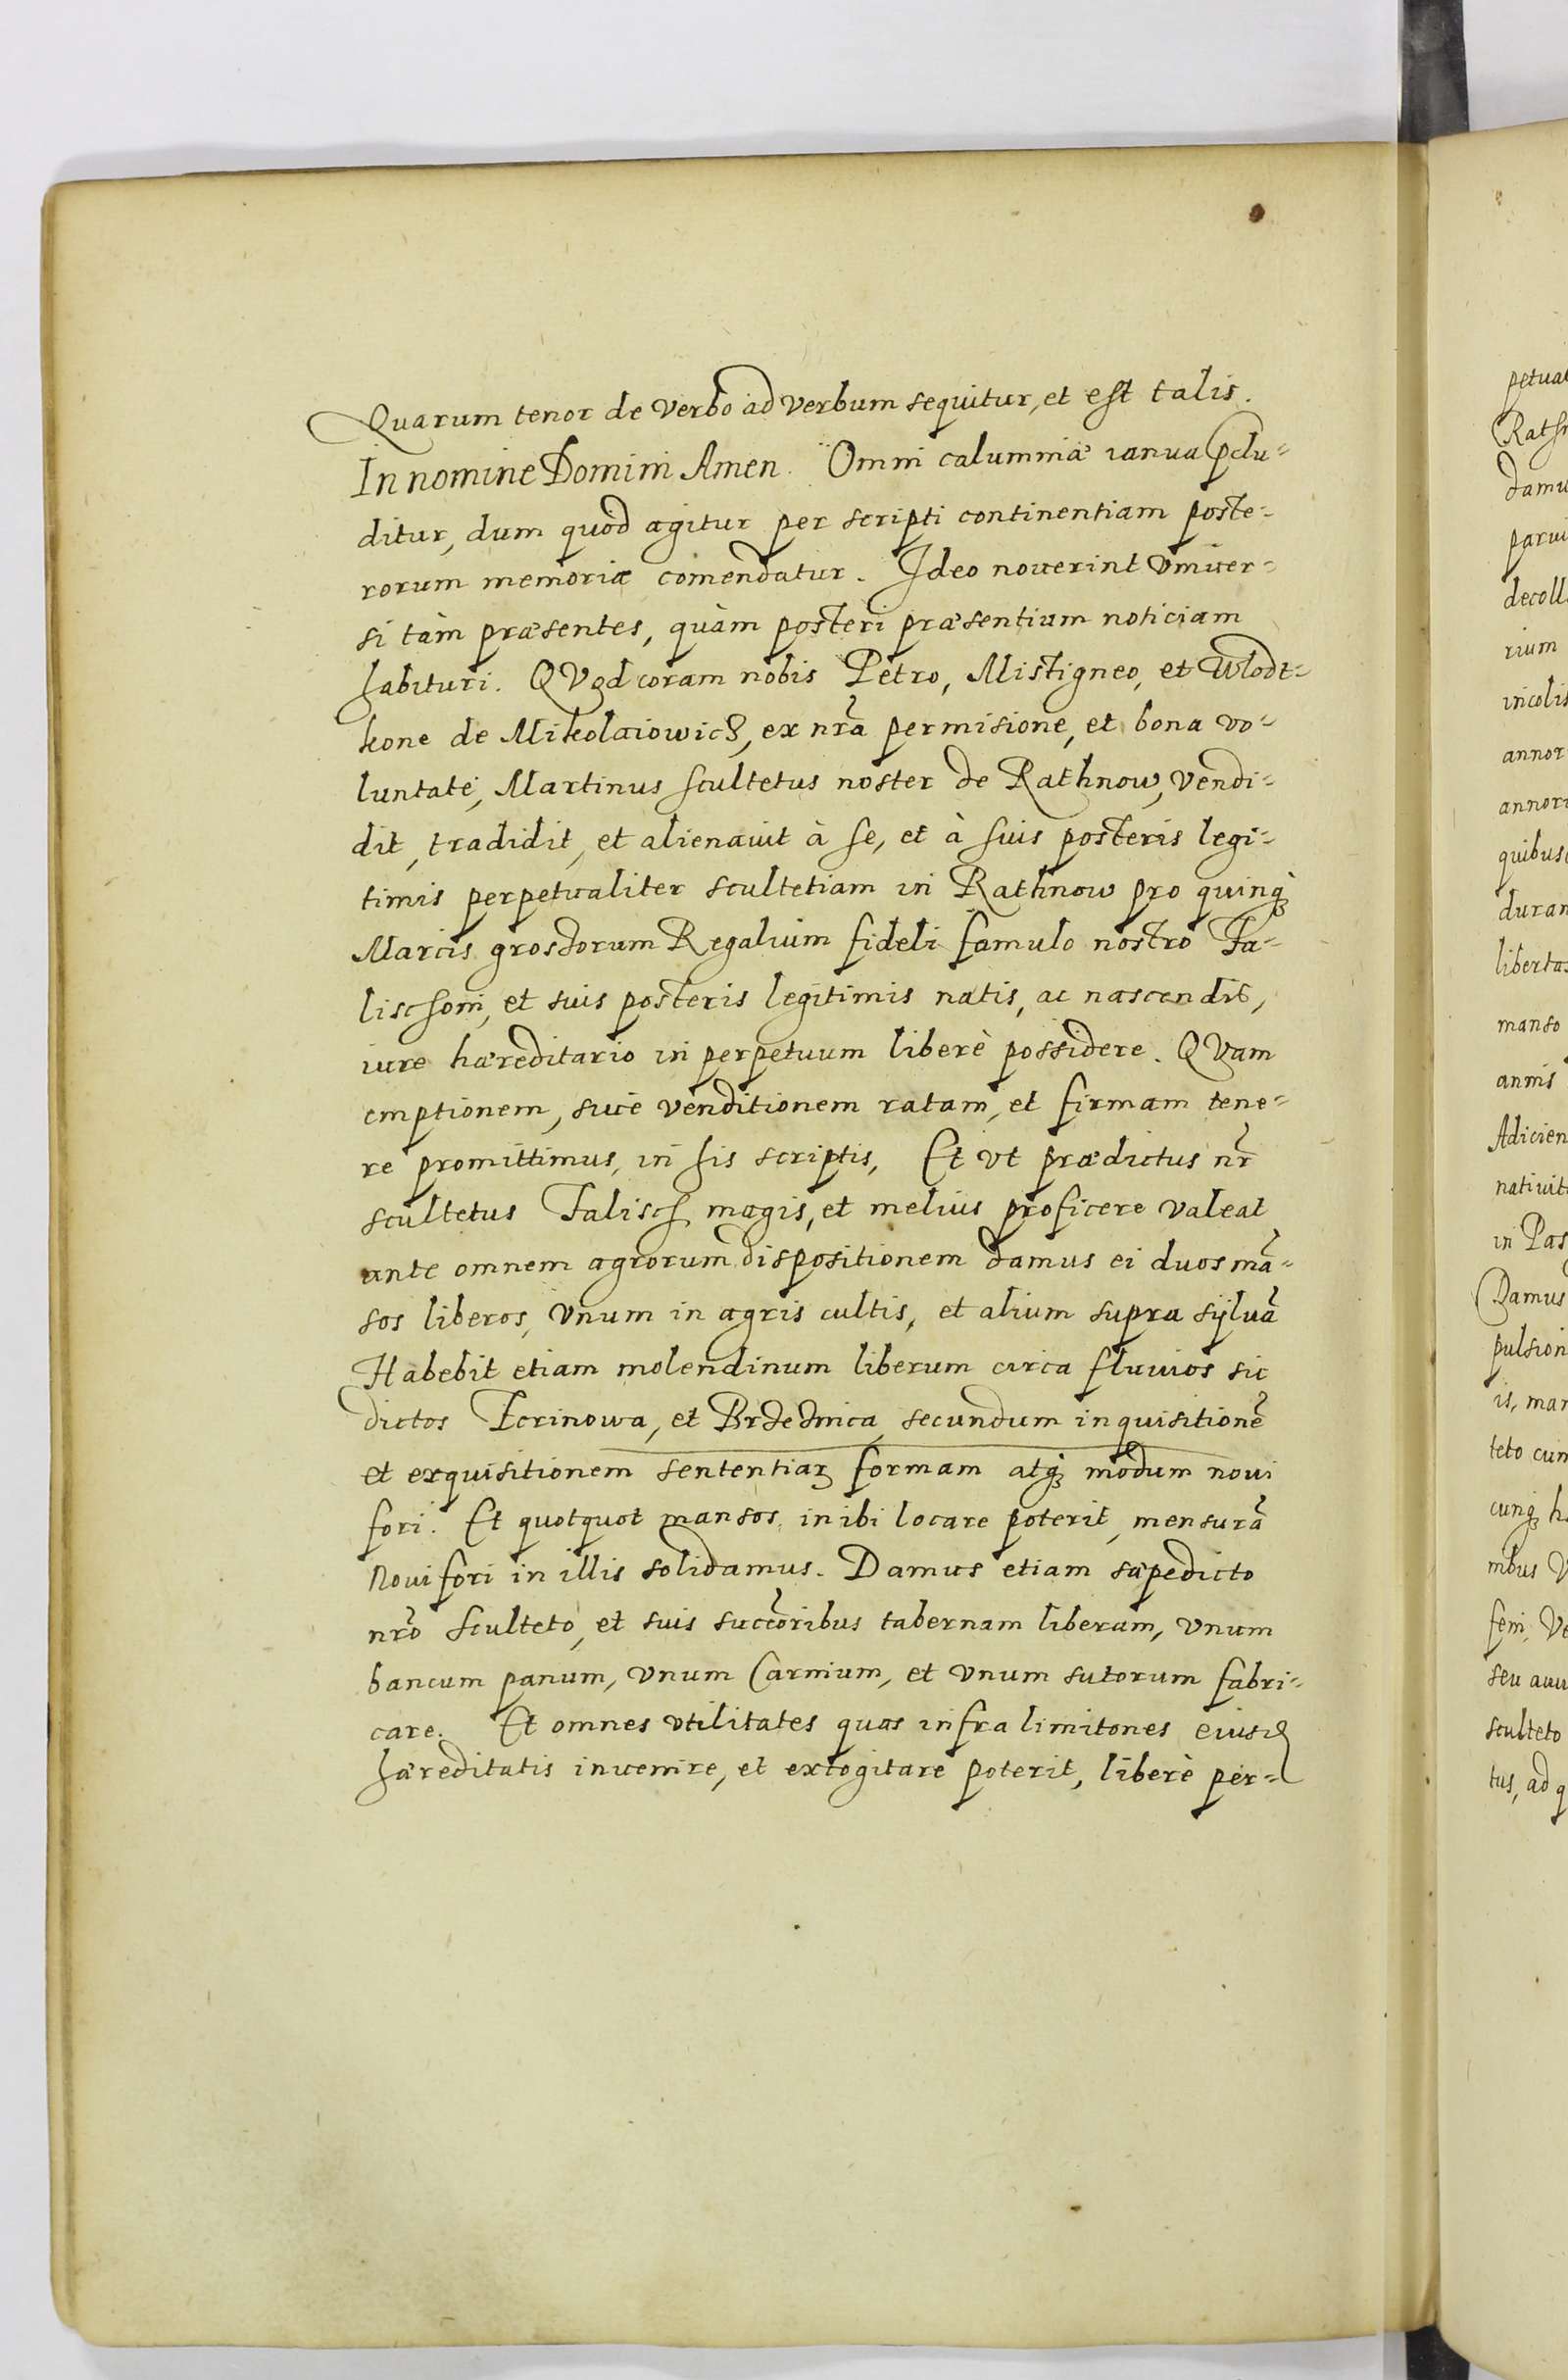 Quarum tenor de verbo ad verbum sequitur, et est talis.
In nomine Domini Amen. Omni calumniæ ianua pclu-
ditur, dum quod agitur per scripti continentiam poste-
rorum memoriæ comendatur. Ideo noverint Univer-
si tàm præsentes, quàm posteri præsentium noticiam
habituri. QVod coram nobis Petro, Mistigneo, et Wlodt-
kone de Mikolaiowicz, ex nrã permisione, et bona vo-
luntate, Martinus scultetus noster de Rathnow, vendi-
dit, tradidit, et alienavit à se, et à suis posteris legi-
timis perpetualiter scultetiam in Rathnow pro quinqȝ
Marcis grossorum Regalium fideli famulo nostro Fa-
lischoni, et suis posteris legitimis natis, ac nascendis,
iure hæreditario in perpetuum liberè possidere. QVam
emptionem, sive venditionem ratam, et firmam tene-
re promittimus, in his scriptis, Et vt prædictus nr̃
scultetus Falisch magis, et melius proficere valeat
ante omnem agrorum dispositionem damus ei duos mã-
sos liberos, Vnum in agris cultis, et alium supra sÿluã
Habebit etiam molendinum liberum circa fluvios sic
dictos Tcrinowa, et Brzeznica, secundum inquisitionẽ
et exquisitionem sententiaꝝ formam atqȝ modum novi
fori. Et quotquot mansos, inibi locare poterit, mensurã
Novi fori in illis solidamus. Damus etiam sæpedicto
nrõ Sculteto, et suis succẽoribus tabernam liberam, vnum
bancum panum, vnum Carnium, et vnum sutorum fabri-
care. Et omnes vtilitates quas infra limitones eiusd
hæreditatis invenire, et excogitare poterit, liberè per-
petuat
damu
parvi
decoll
rium
incolis
annor
annor
quibus
duran
liberta
manso
annis
Adicien
nativit
in Pas
Damus
pulsion
is, man
teto cum
cunqȝ h
nibus V
feni, Ve
seu
sculteto
tus, ad q